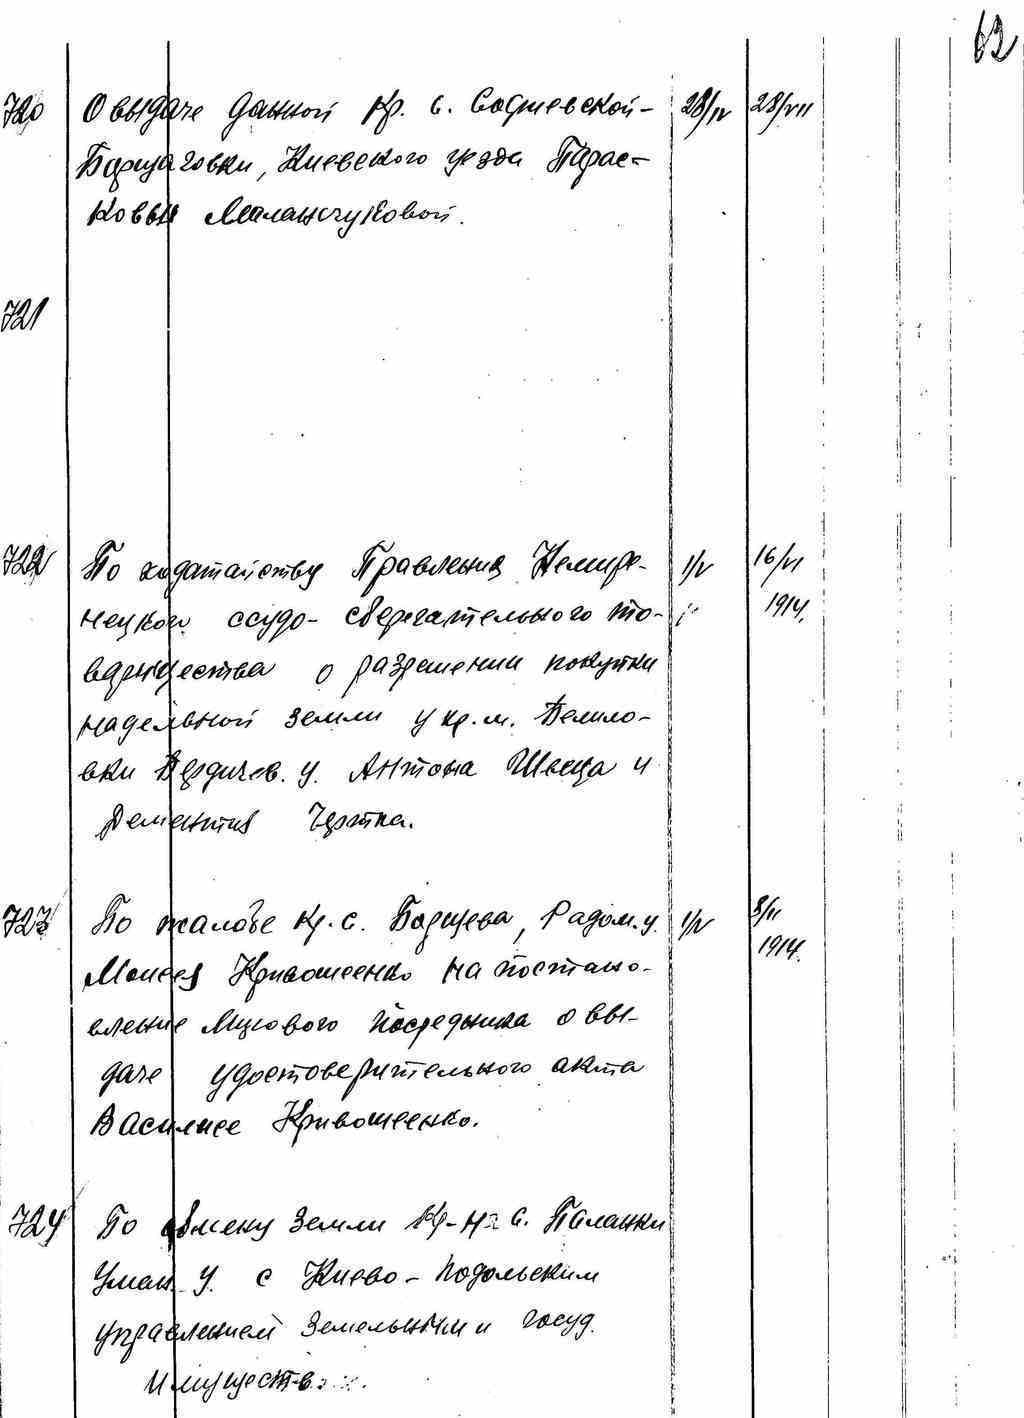 62
720 О выдаче данной кр. с. Софиевской- 28/IV 28/VII
Борщаговки, Киевского уезда Парас-
ковьи Маланчуковой.
721
722 По ходатайству Правления Немире- 1/V 16/VI
нецкого ссудо-сберегательного то- 1914.
варищества о разрешении покупки
надельной земли у кр. м. Белило-
вки Бердичев. у. Антона Швеца и
Дементия Чертка.
723 По жалобе кр. с. Борщева, Радом. у. 1/V 8/II
Моисея Кривошеенко на постано- 1914.
вление Мирового посредника о вы-
даче удостоверительного акта
Василисе Кривошеенко.
724 По обмену земли кр-на с. Паланки
Уман. у. с Киево-Подольским
управлением земельными госуд.
имуществ.